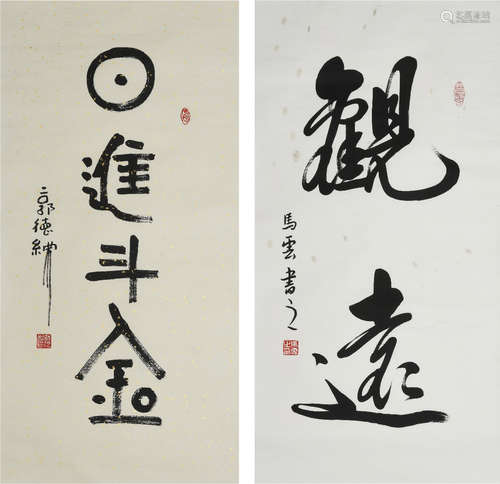 日進斗金
郭德綱
觀遠
馬雲書之